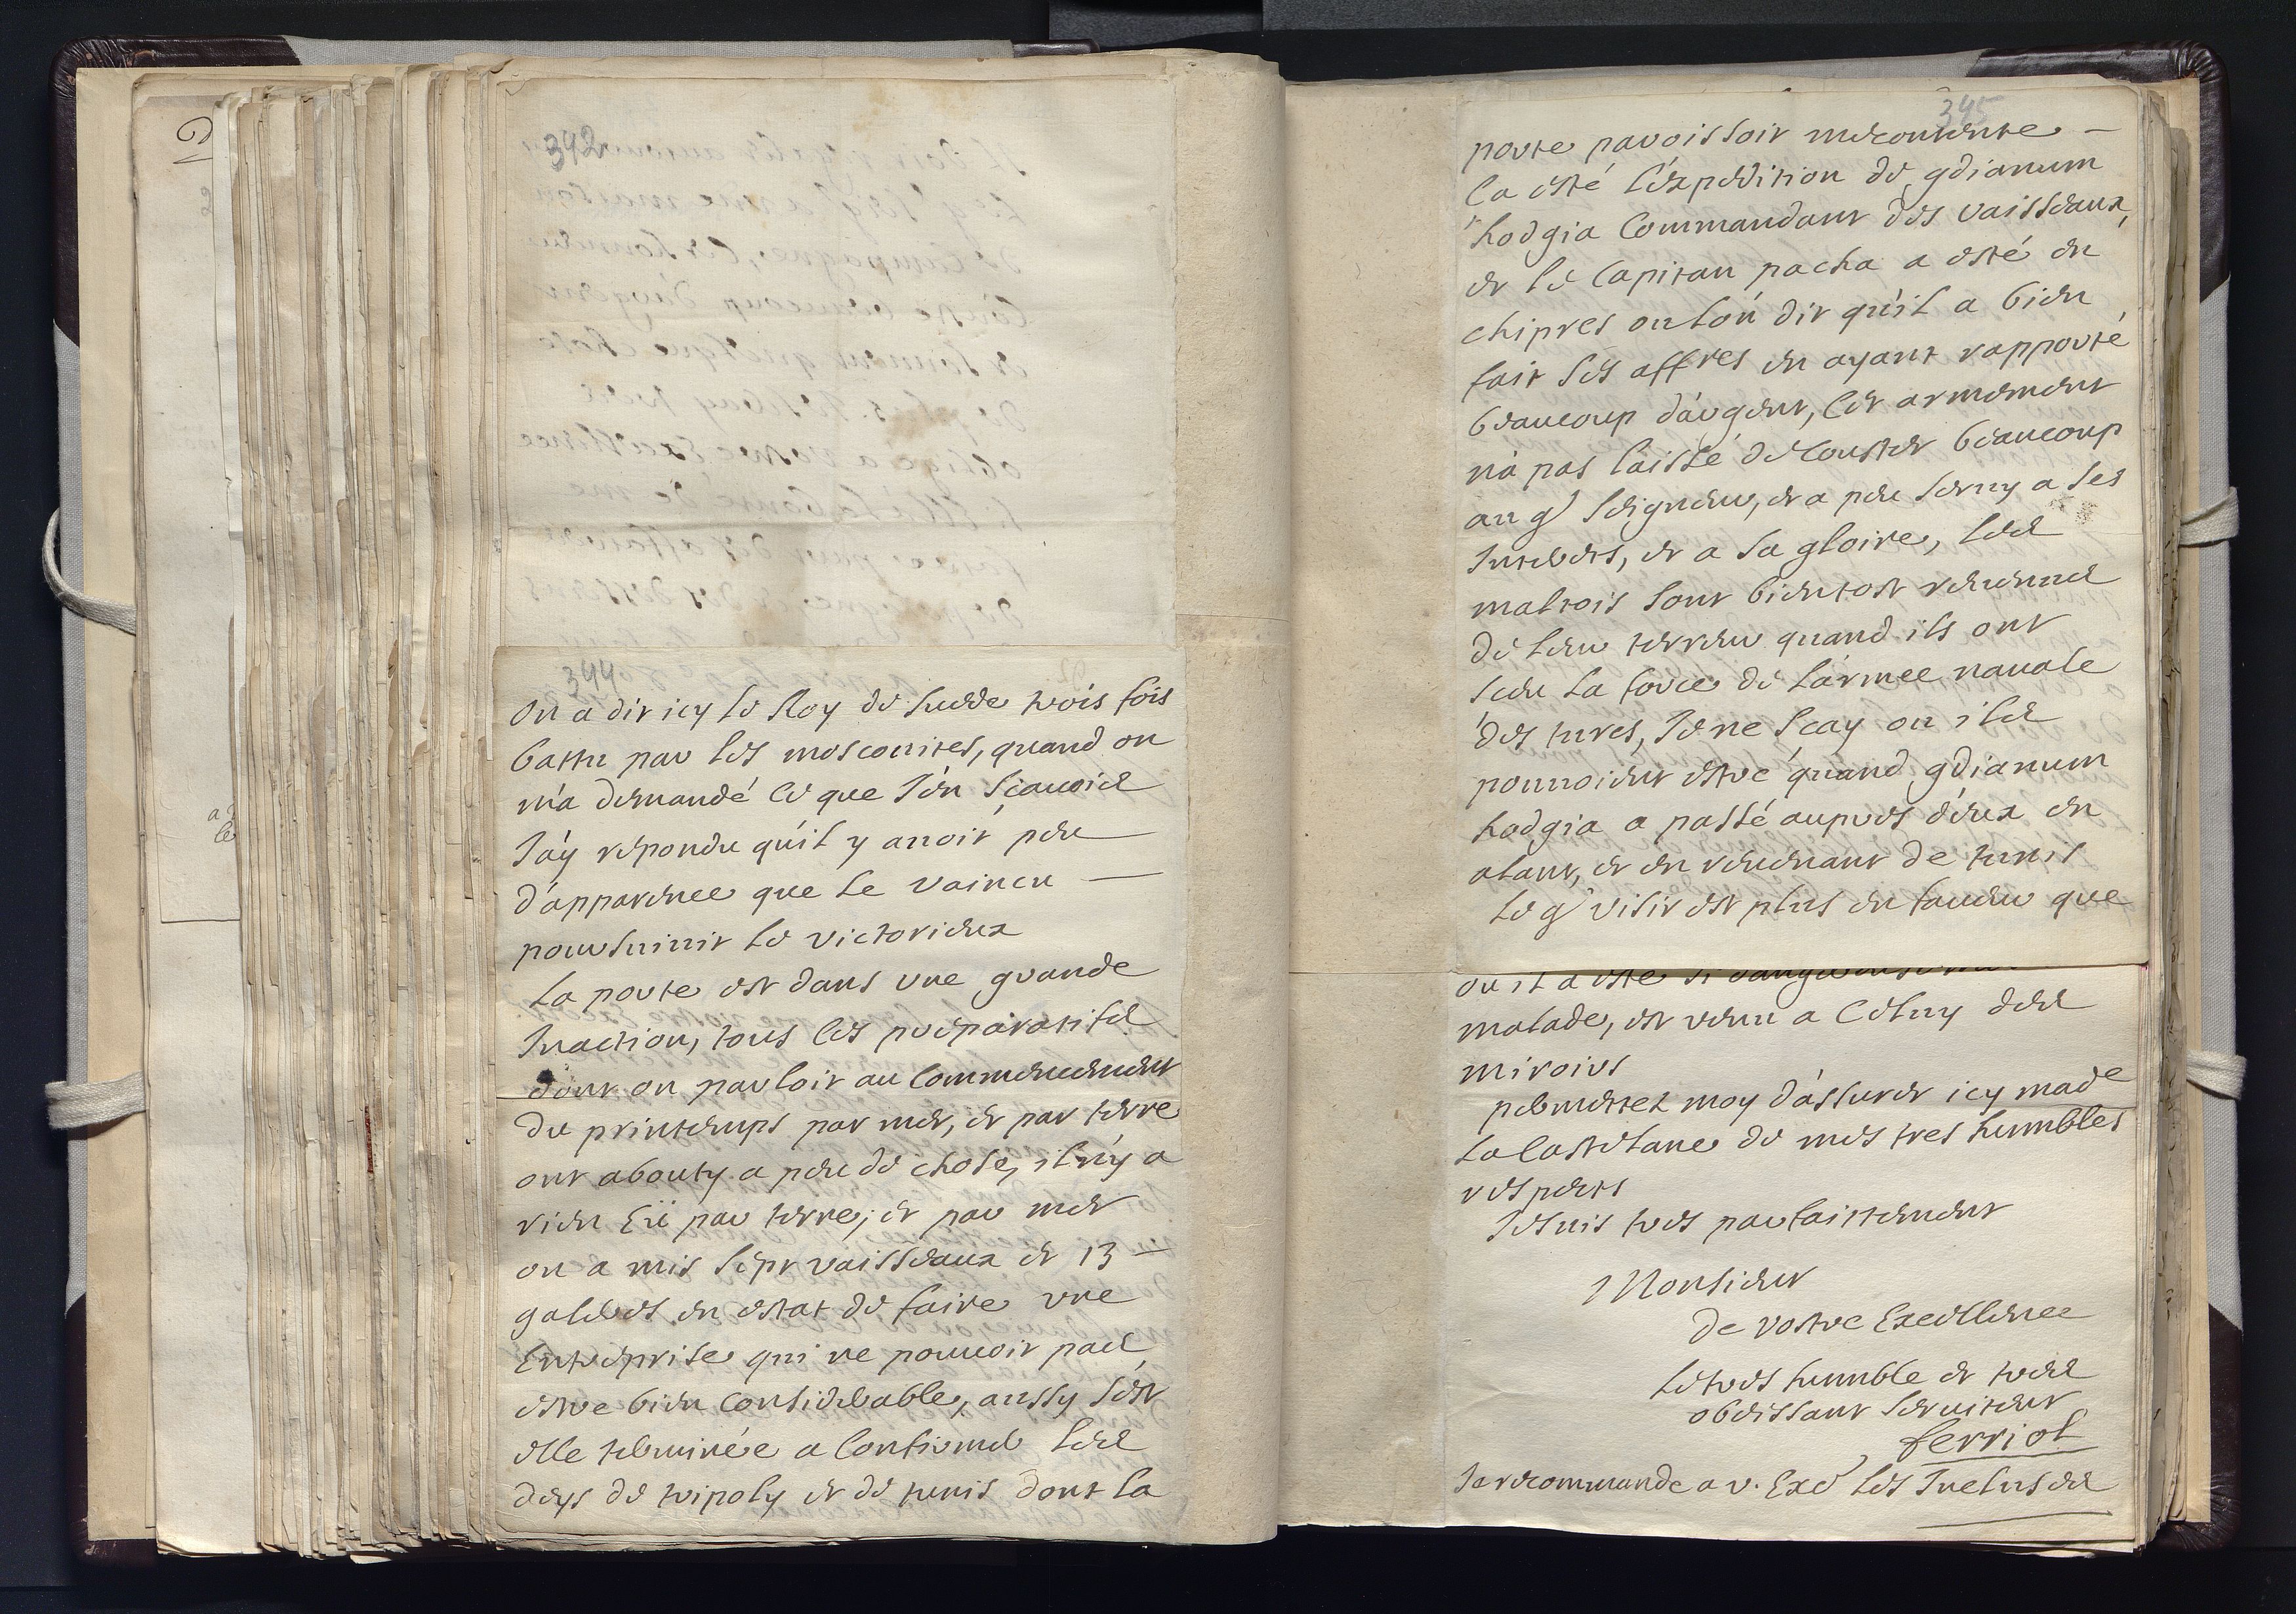 392
344
on a dit icy le Roy de suede trois fois
battu par les moscouites, quand on
m'a demandé ce que j'en scauois
J'ay repondu qu'il y auoit peu
d'apparence que le vaincu —
poursuiuit le victorieux
La porte est dans une grande
Inaction, tous les preparatifs
dont on parloit au commencement
du printemps par mer, et par terre
ont abouty a peu de chose, il n'y a
rien Eü par terre, et par mer
on a mis sept vaisseaux et 13 —
galeres en estat de faire une
Entreprise qui ne pouuoit pas
estre bien considerable, aussy s'est
elle terminée a confirmer les
deys de tripoly et de tunis dont la
345
porte paroissoit mecontente —
ca esté l'expedition de gdianum
hodgia Commandant des vaisseaux,
et le Capitan pacha a esté en
chipres ou l'on dit qu'il a bien
fait ses affres en ayant rapporté
beaucoup d'argent, cet armement
n'a pas laissé de couster beaucoup
au gd Seigneur, et a peu seruy a ses
Interets, et a sa gloire, les
maltois sont bientost reuenus
de leur terreur quand ils ont
sceu la force de l'armee nauale
des turcs, Je ne scay ou ils
pouuoient estre quand gdianum
hodgia a passé aupres d'eux en
alant, et en reuenant de tunis
Le gd visir est plus en faueur que
ou il a esté si dangereusement
malade, est venu a Celuy des
miroirs
permettez moy d'assurer icy made
la Castelane de mes tres humbles
respects
Je suis tres parfaittement
Monsieur
de vostre Excellence
Le tres humble et tres
obeissant seruiteur
ferriol
Je recommande a v. Exce les Incluses